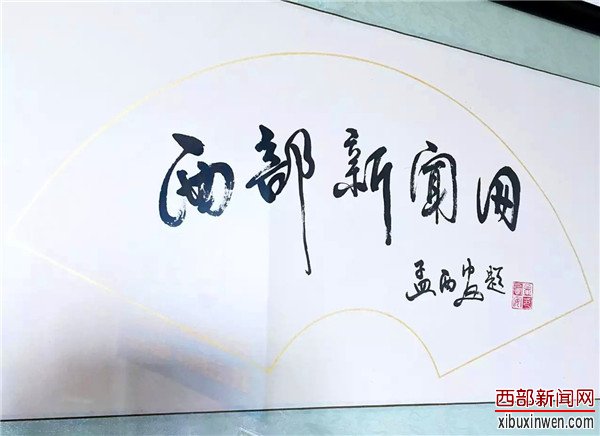 西部新闻网
孟西安题
西部新闻网
xibuxinwen.com